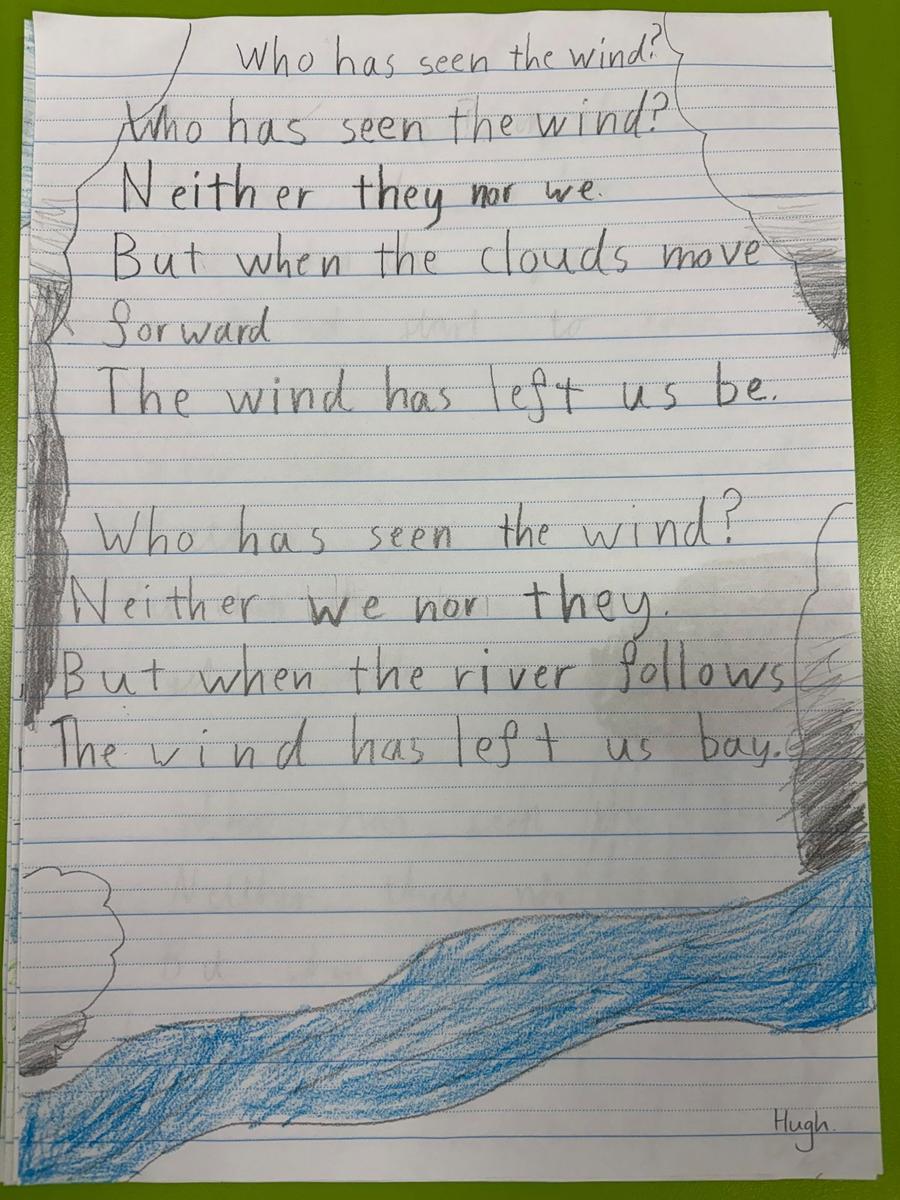 Who has seen the wind?
Who has seen the wind?
Neither they nor we.
But when the clouds move
forward
The wind has left us be.
Who has seen the wind?
Neither we nor they.
But when the river follows
The wind has left us bay.
Hugh.